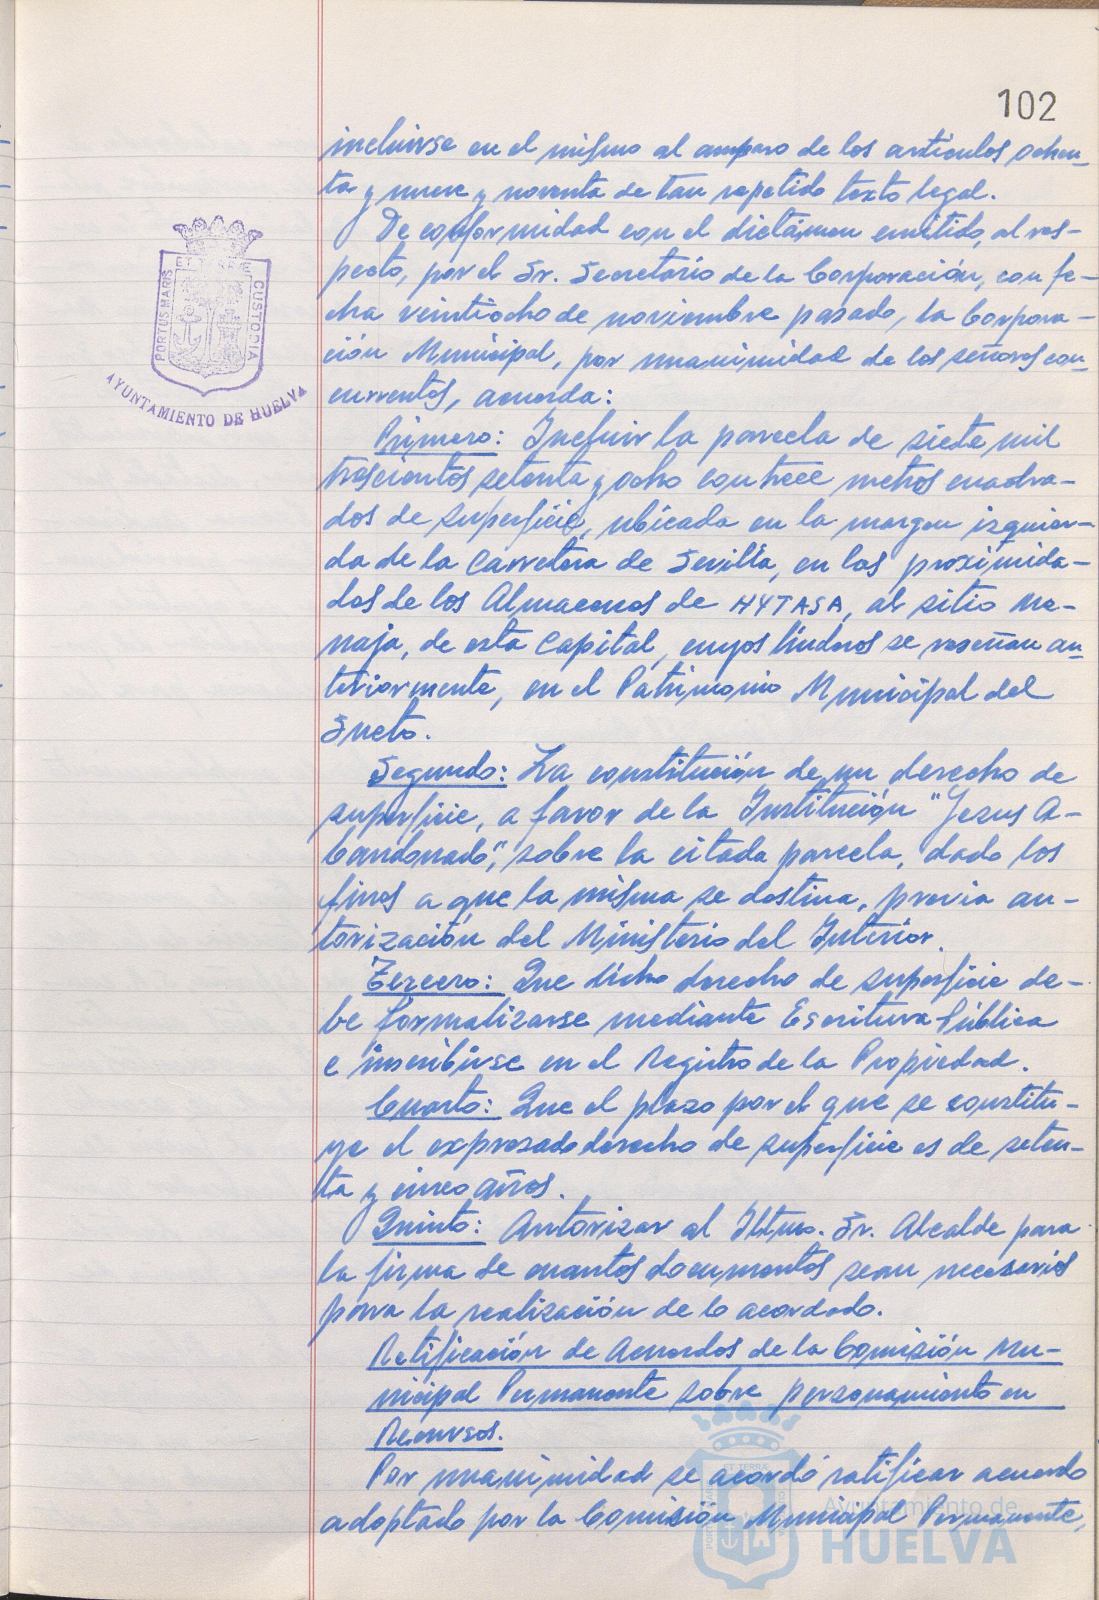 102
incluirse en el mismo al amparo de los artículos ochen-
ta y nueve y noventa de tan repetido texto legal.
De conformidad con el dictamen emitido, al res-
pecto, por el Sr. Secretario de la Corporación, con fe-
cha veintiocho de noviembre pasado, la Corpora-
ción Municipal, por unanimidad de los señores con-
currentes, acuerda:
Primero: Incluir la parcela de siete mil
trescientos setenta y ocho con trece metros cuadra-
dos de superficie, ubicada en la margen izquier-
da de la Carretera de Sevilla, en las proximida-
des de los Almacenes de HYTASA, al sitio Me-
naja, de esta Capital, cuyos linderos se reseñan an-
teriormente, en el Patrimonio Municipal del
Suelo.
Segundo: La constitución de un derecho de
superficie, a favor de la Institución "Jesus A-
bandonado", sobre la citada parcela, dado los
fines a que la misma se destina, previa au-
torización del Ministerio del Interior.
Tercero: Que dicho derecho de superficie de-
be formalizarse mediante Escritura Pública
e inscribirse en el Registro de la Propiedad.
Cuarto: Que el plazo por el que se constitu-
ye el expresado derecho de superficie es de seten-
ta y cinco años.
Quinto: Autorizar al Iltmo. Sr. Alcalde para
la firma de cuantos documentos sean necesarios
para la realización de lo acordado.
Ratificación de Acuerdos de la Comisión Mu-
nicipal Permanente sobre personamiento en
Recursos.
Por unanimidad se acordó ratificar acuerdo
adoptado por la Comisión Municipal Permanente,
PORTUS MARIS ET TERRE CUSTODIA
AYUNTAMIENTO DE HUELVA
Ayuntamiento de
HUELVA